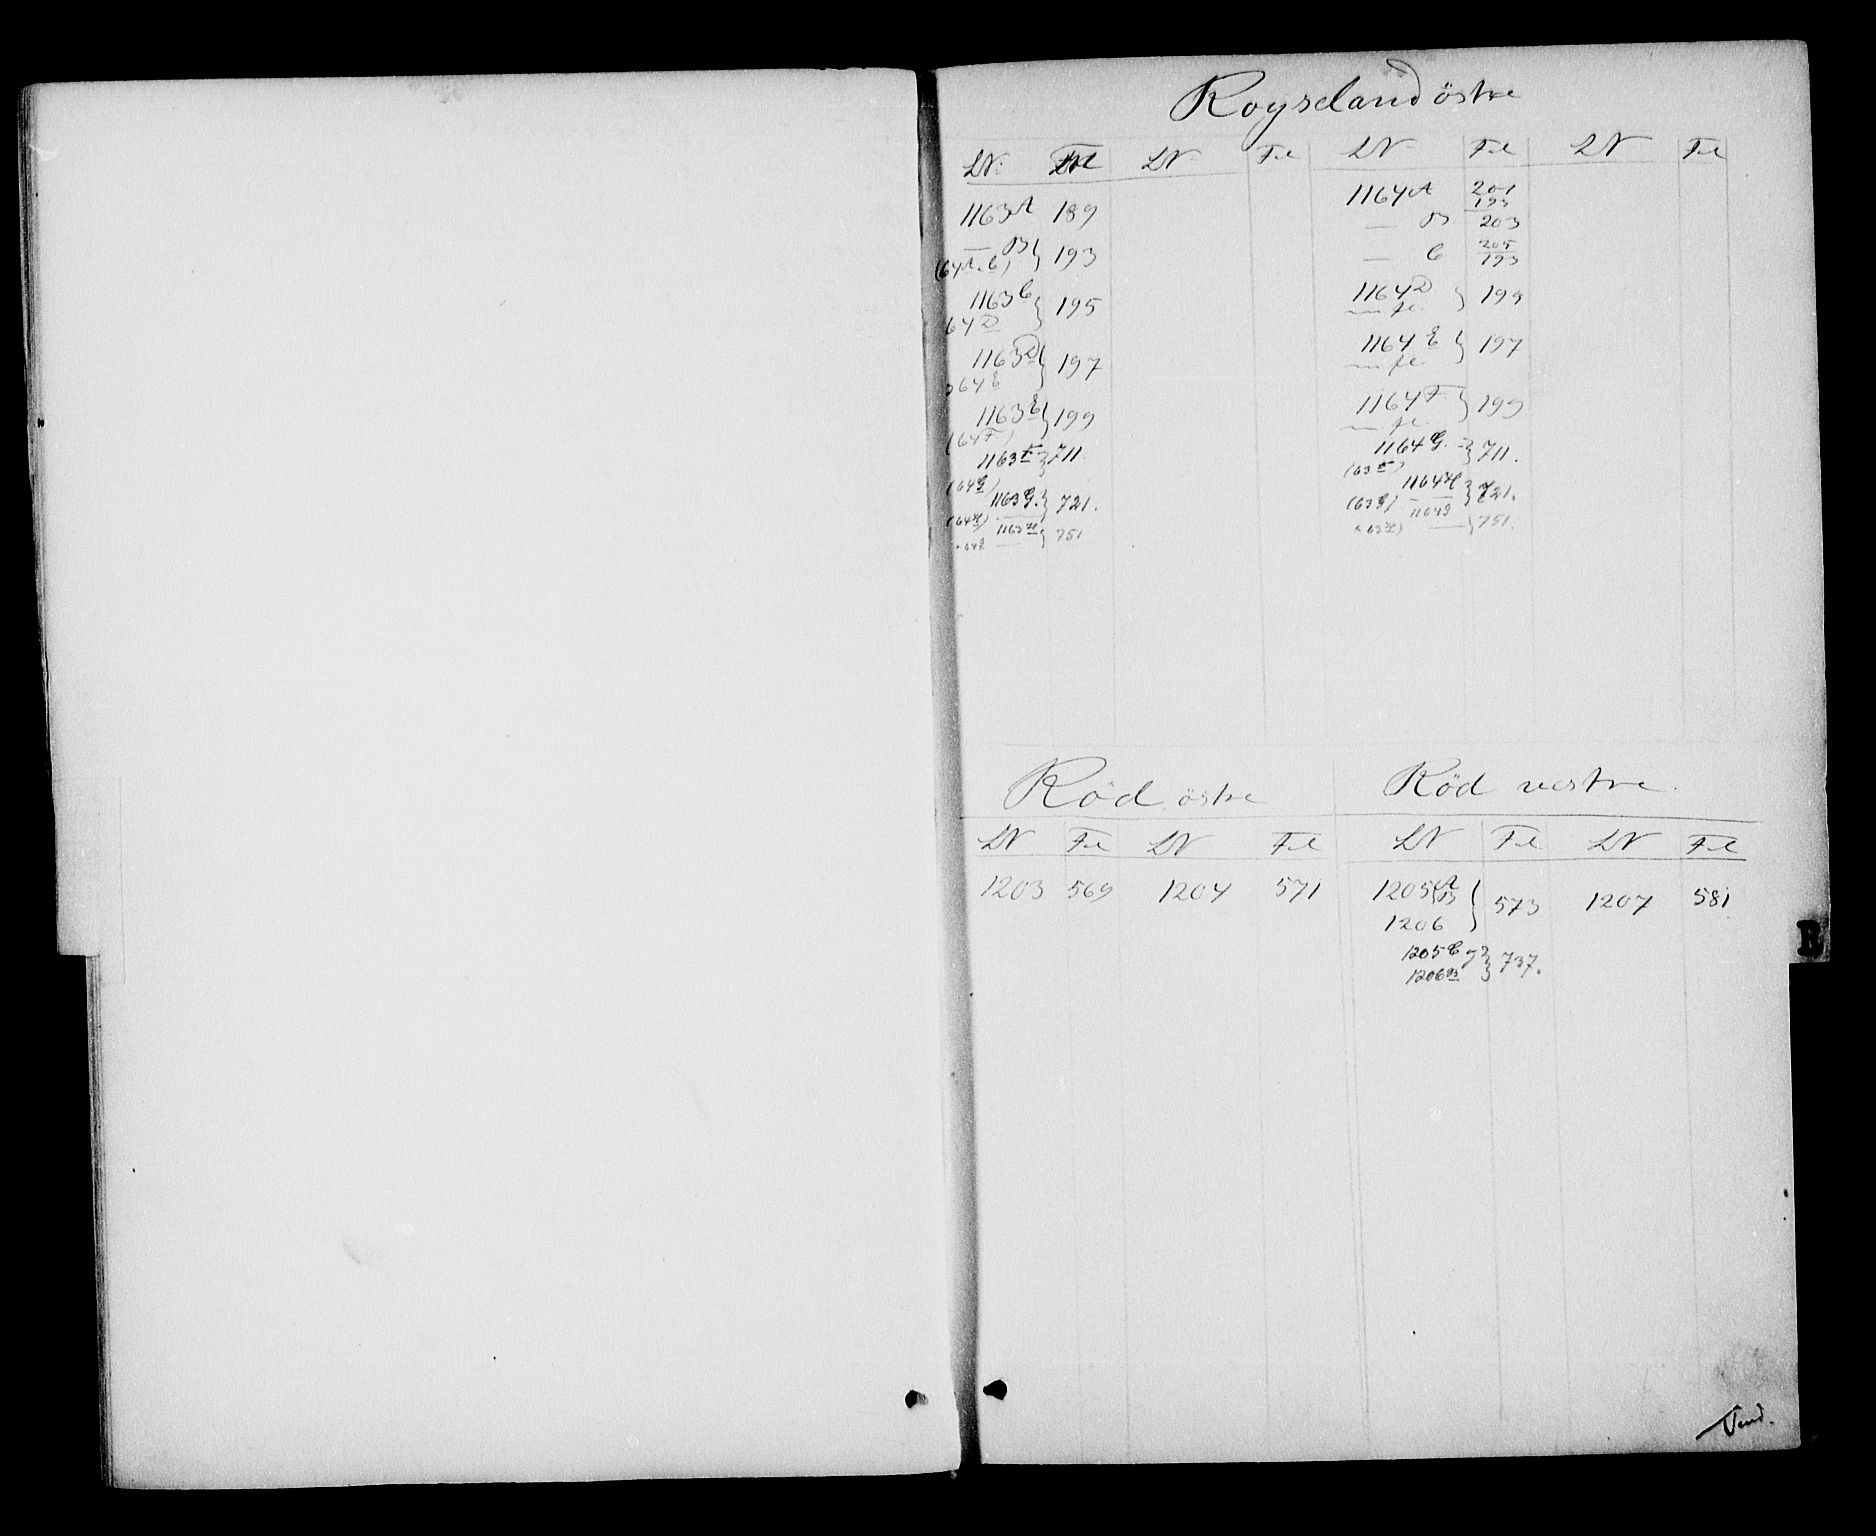 Røyseland östre
LN. Fol LN. Fol LN Fol LN Fol
1163A 189
— B } 193
(64A. C)
1163C } 195
64D
1163D } 197
64E
1163E } 199
(64F.)
1163F } 711.
(64G)
1163G. } 721.
(64H)
1163H } 751
64I —
1164A 201
193
— B 203
— C 205
193
1164D } 195
m fl.
1164E } 197
m fl.
1164F } 199
m fl.
1164G. } 711.
(63F)
1164H } 721.
(63G) —
1164I } 751.
(63H) —
Röd östre
LN Fol LN Fol
1203 569 1204 571
Röd vestre.
LN Fol LN Fol
1205 A B } 573 1207 581
1206
1205C g } 737.
1206B
R
Vend.